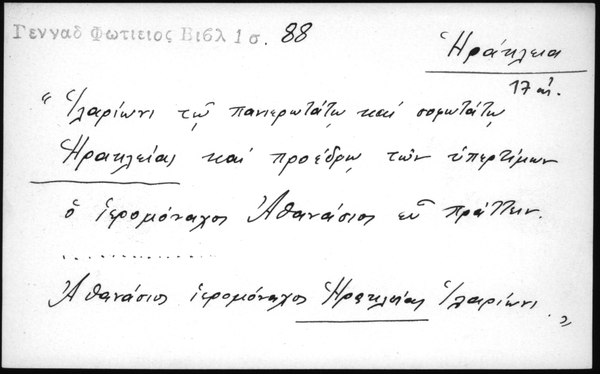 Γενναδ Φωτιειος Βιβλ 1 σ. 88
Ἡράκλεια
17 αἰ.
"Ἱλαρίωνι τῷ πανιερωτάτῳ καὶ σοφωτάτῳ
Ἡρακλείας καὶ προέδρῳ τῶν ὑπερτίμων
ὁ ἱερομόναχος Ἀθανάσιος εὖ πράττειν.
..............
Ἀθανάσιος ἱερομόναχος Ἡρακλείας Ἱλαρίωνι."